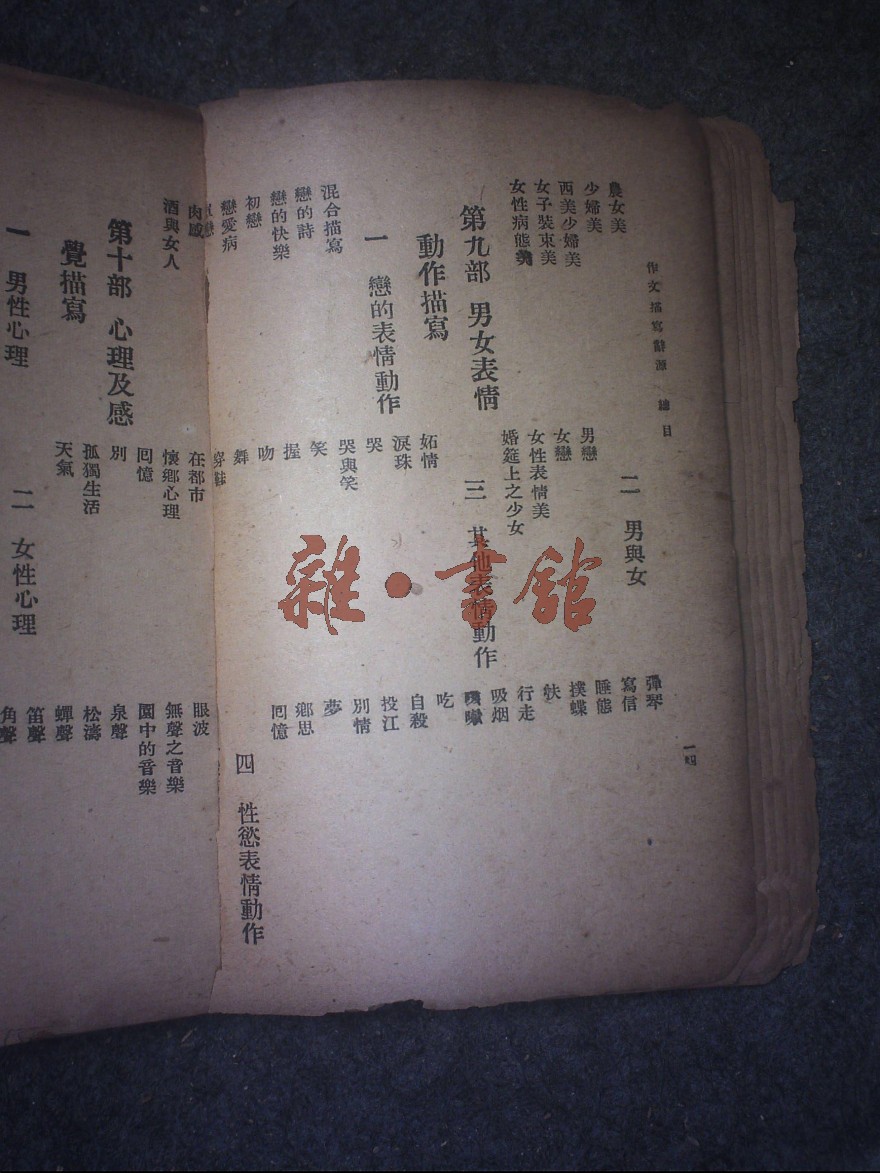 作文描寫辭源 總目
一四
農女美
少婦美
西美少婦美
女子裝束美
女性病態美
第九部 男女表情
動作描寫
一 戀的表情動作
混合描寫
戀的詩
戀的快樂
初戀
戀愛病
二 男與女
男戀
女戀
女性表情美
婚筵上之少女
三 其他表情動作
妬情
淚珠
哭
哭與笑
笑
握
吻
舞
彈琴
寫信
睡態
撲蝶
行走
吸烟
吃
自殺
投江
別情
夢
鄉思
囘憶
四 性慾表情動作
肉感
酒與女人
第十部 心理及感
覺描寫
一 男性心理
在都市
懷鄉心理
囘憶
別
孤獨生活
天氣
二 女性心理
眼波
無聲之音樂
園中的音樂
泉聲
松濤
蟬聲
笛聲
角聲
雜·書館